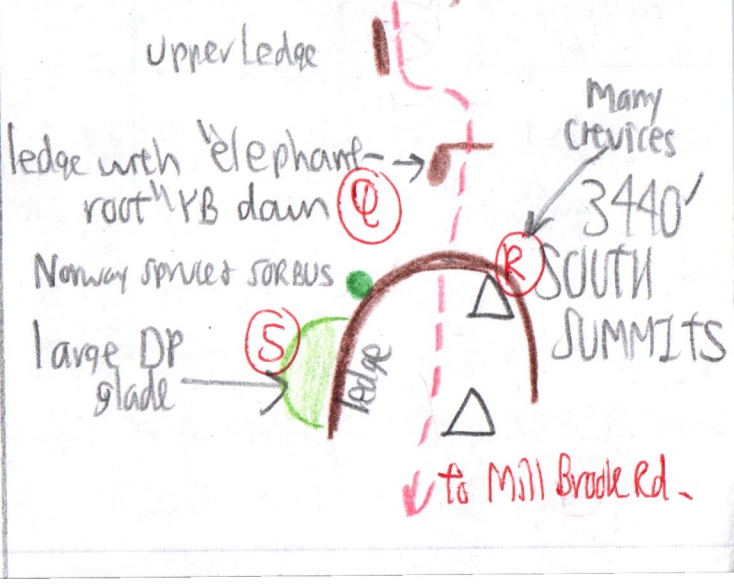 Upper Ledge
Many
Crevices
ledge with "elephant-
root" YB down
Q
3440'
R
SOUTH
SUMMITS
Norway spruce & SORBUS
S
large DP
glade
ledge
to Mill Brook Rd.